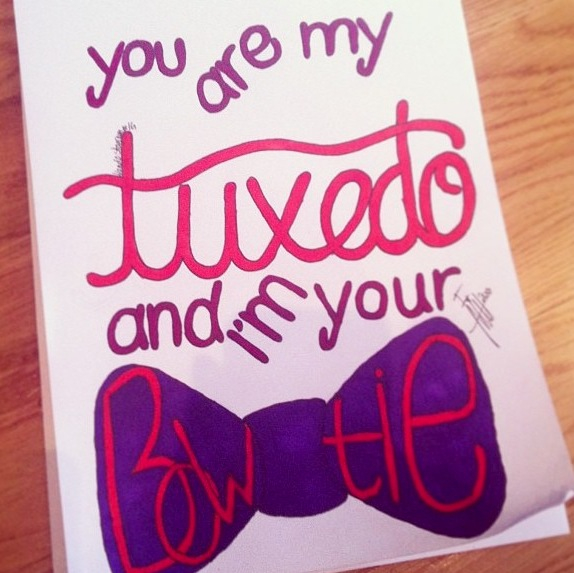 you are my
tuxedo
and i'm your
Bowtie